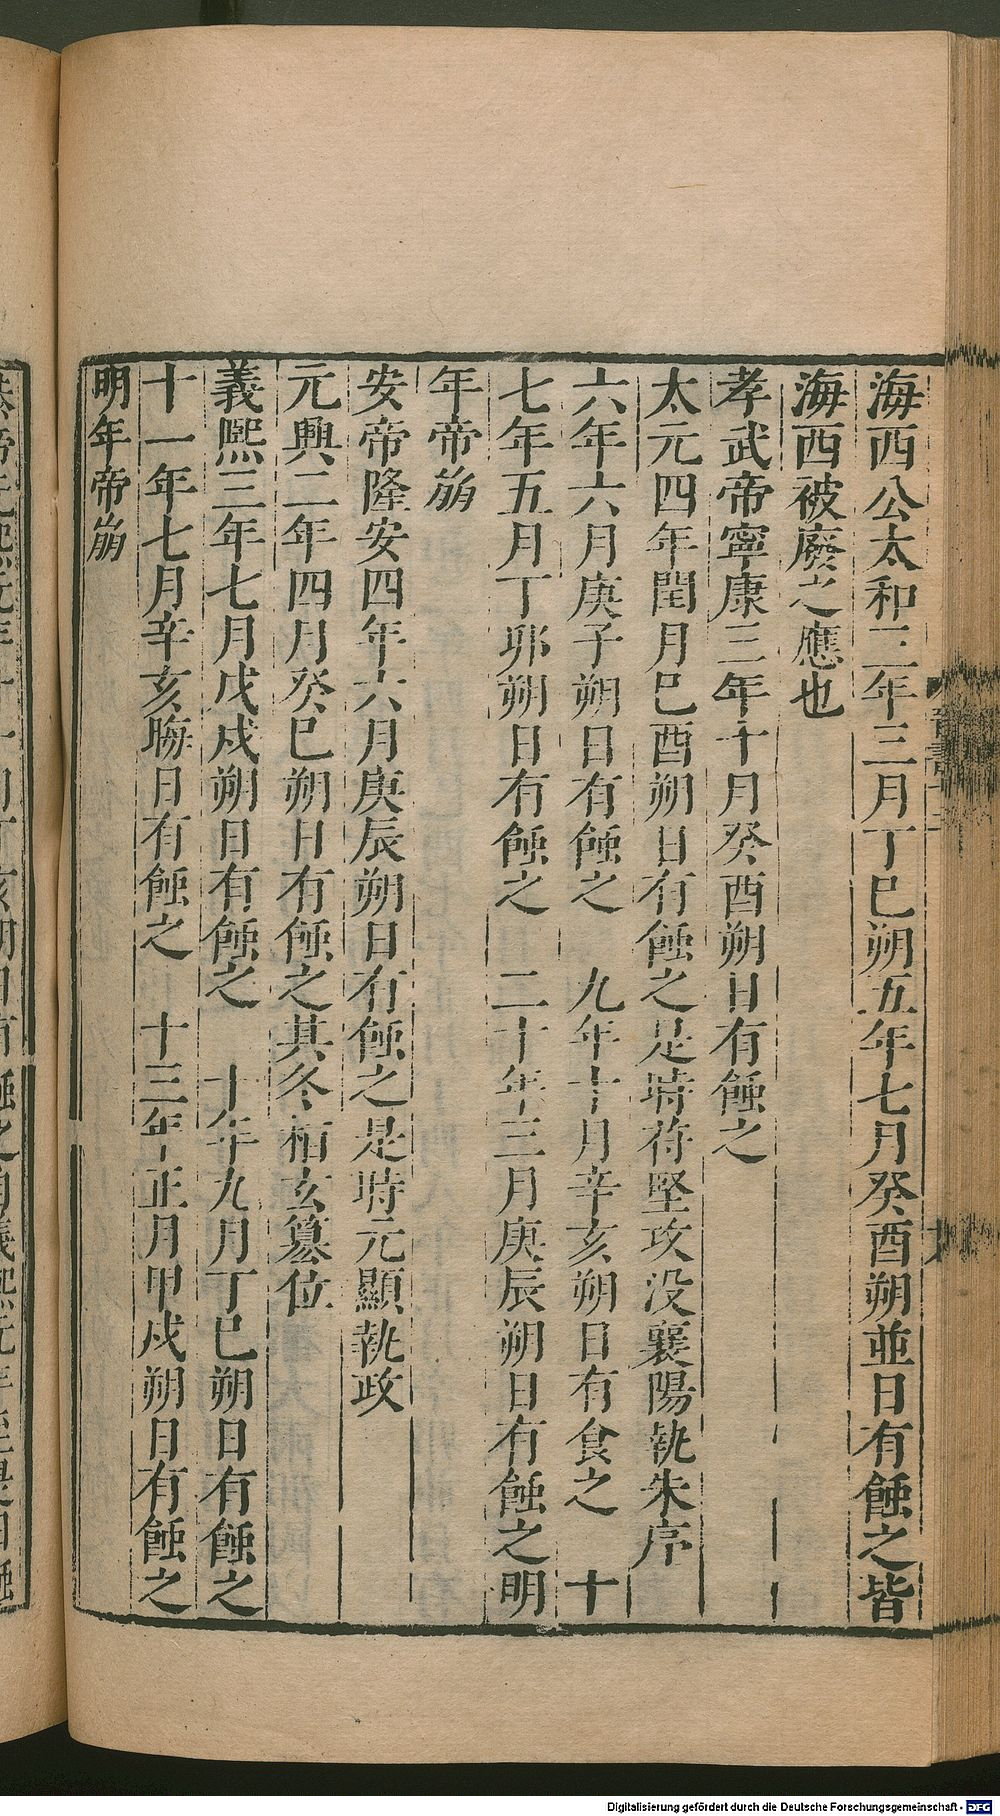 海西公太和三年三月丁巳朔五年七月癸酉朔並日有蝕之皆
海西被廢之應也
孝武帝寧康三年十月癸酉朔日有蝕之
太元四年閏月巳酉朔日有蝕之是時苻堅攻没襄陽執朱序
六年六月庚子朔日有蝕之　九年十月辛亥朔日有食之　十
七年五月丁卯朔日有蝕之　二十年三月庚辰朔日有蝕之明
年帝崩
安帝隆安四年六月庚辰朔日有蝕之是時元顯執政
元興二年四月癸巳朔日有蝕之其冬桓玄簒位
義熙三年七月戊戌朔日有蝕之　十年九月丁巳朔日有蝕之
十一年七月辛亥晦日有蝕之　十三年正月甲戌朔日有蝕之
明年帝崩
Digitalisierung gefördert durch die Deutsche Forschungsgemeinschaft - DFG